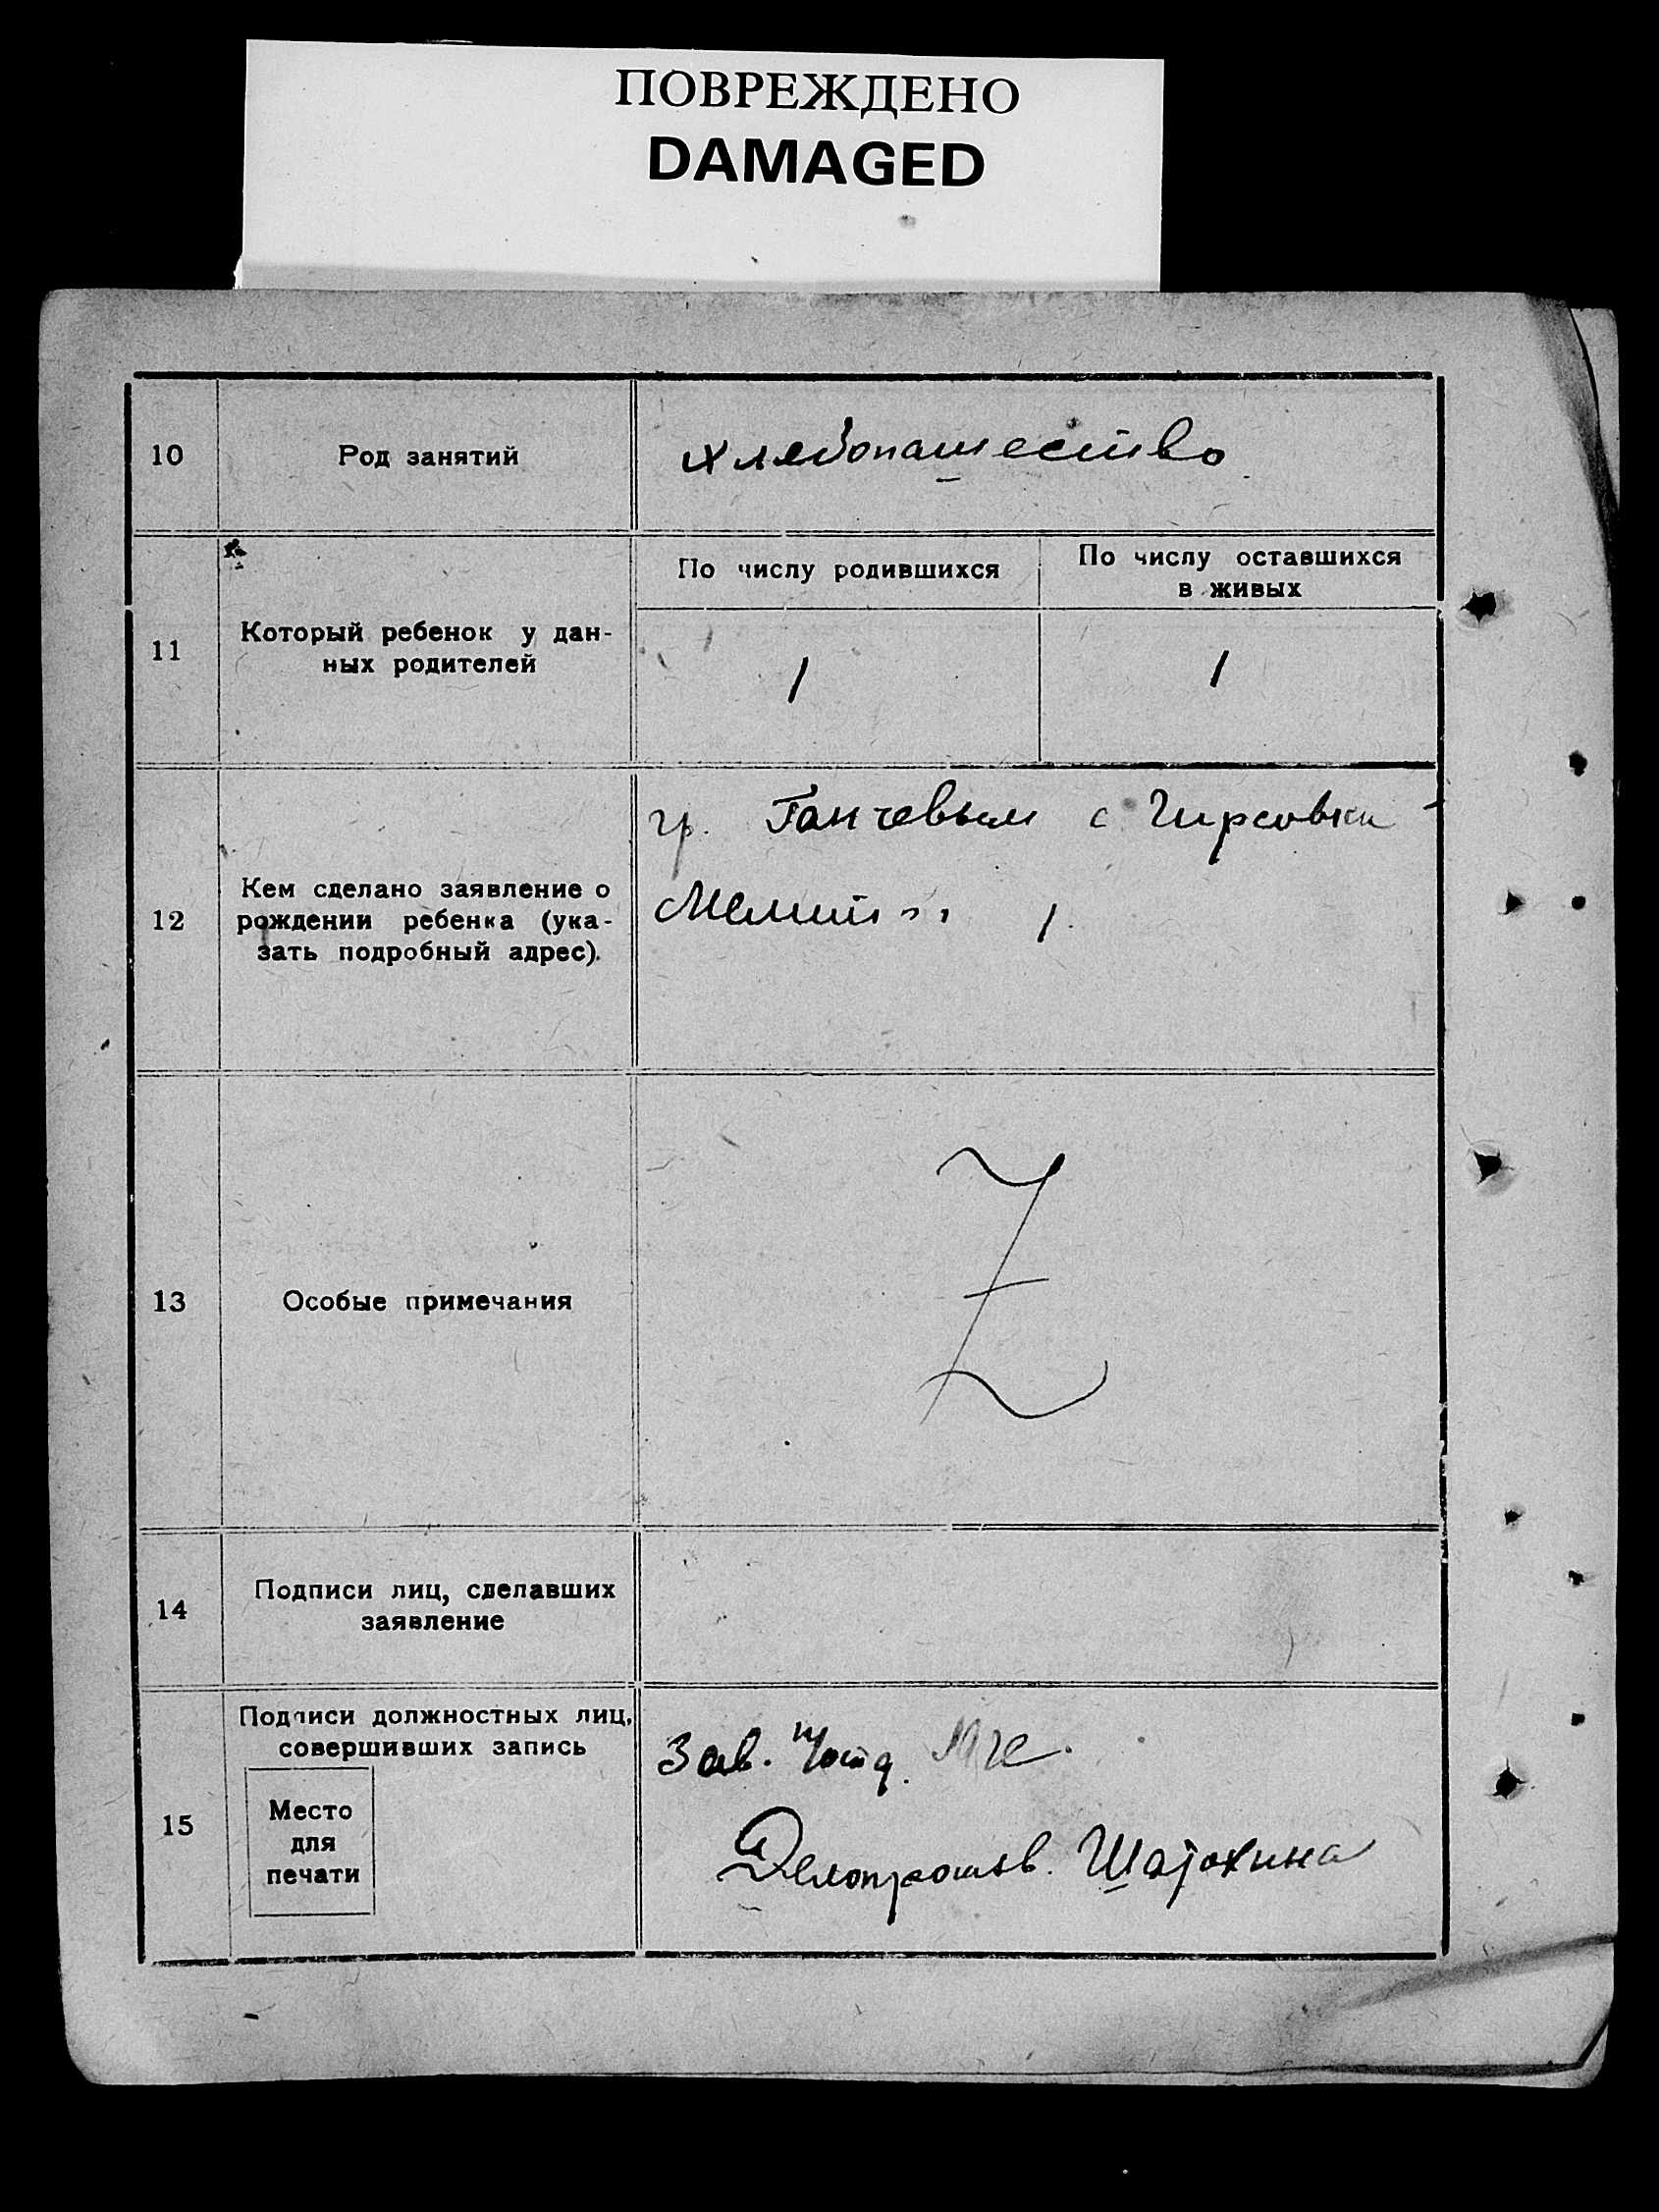 ПОВРЕЖДЕНО
DAMAGED
10
Род занятий
хлебопашество
11
Который ребенок у дан-
ных родителей
По числу родившихся
1
По числу оставшихся
в живых
1
12
Кем сделано заявление о
рождении ребенка (ука-
зать подробный адрес).
гр. Ганчевым с. Гирсовки
13
Особые примечания
Z
14
Подписи лиц, сделавших
заявление
15
Подписи должностных лиц,
совершивших запись
Место
для
печати
Зав.
Делопроизв. Шатохина